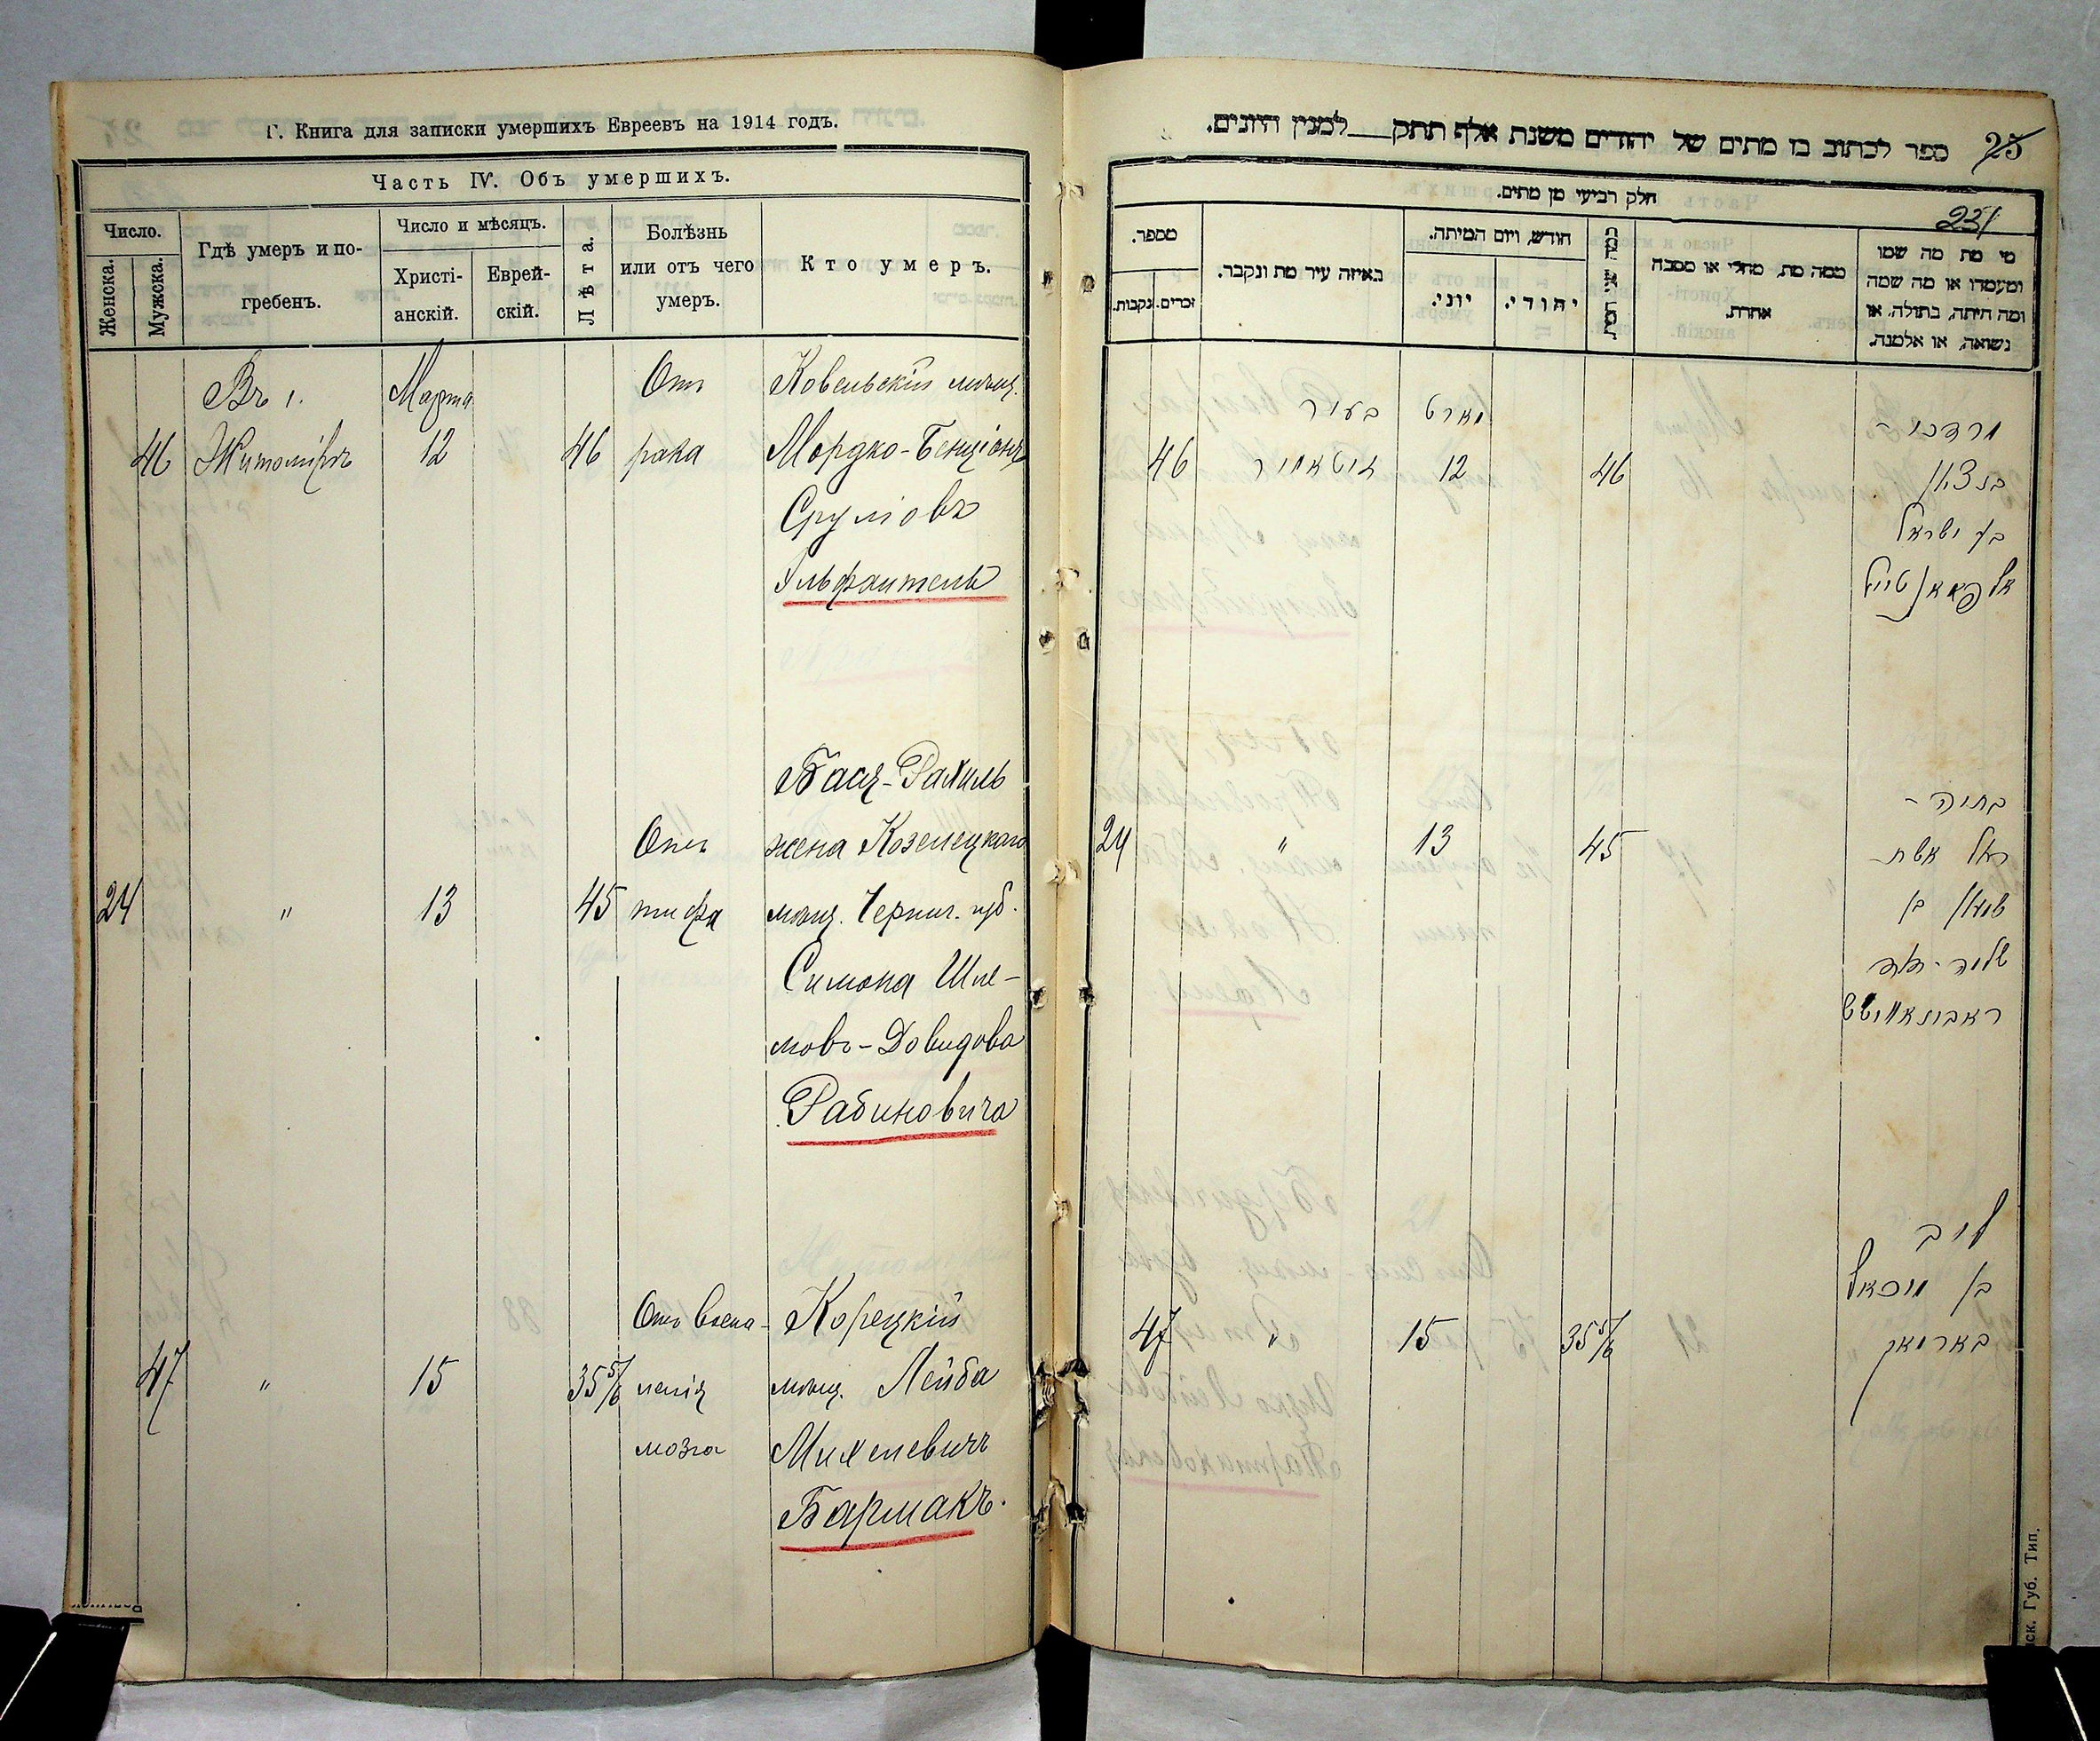 Г. Книга для записки умершихъ Евреевъ на 1914 годъ.
Часть IV. Объ умершихъ.
Число.
Женска.
Мужска.
Гдѣ умеръ и по-
гребенъ.
Число и мѣсяцъ.
Христі-
анскій.
Еврей-
скій.
Лѣта.
Болѣзнь
или отъ чего
умеръ.
Кто умеръ.
Въ г. Марта Отъ Ковельскій мѣщ.
46 Житомірѣ 12 46 рака Мордко-Бенціонъ
Сруліовъ
Эльфантель
Бася-Рахиль
Отъ жена Козелецкаго
24 " 13 45 тифа мѣщ. Черниг. губ.
Симона Шле-
мовъ-Довидова
Рабиновича
Отъ воспа- Корецкій
47 " 15 35 5/6 ленія мѣщ. Лейба
мозга Михелевичъ
Бармакъ.
ספר לכתוב בו מתים של יהודים משנת אלף תתק___למנין היונים. 25
חלק רביעי מן מתים.
231
מספר.
נקבות.
זכרים.
באיזה עיר מת ונקבר.
חודש, ויום המיתה.
יוני.
יהודי.
כמה שני המת
ממה מת, מחלי או מסבה
אחרת.
מי מת מה שמו
ומעמדו או מה שמה
ומה היתה, בתולה, או
נשואה, או אלמנה.
מרדכי -
בעיר מארט
46 זיטאמיר 12 46 בנציון
בן ישראל
אלפאנטעל
בתיה -
24 " 13 45 רחל אשת
שמעון בן
שלמה-דוד
ראבינאוויטש
ליב
בן מיכאל
47 " 15 35 5/6 בארמאק
ск. Губ. Тип.